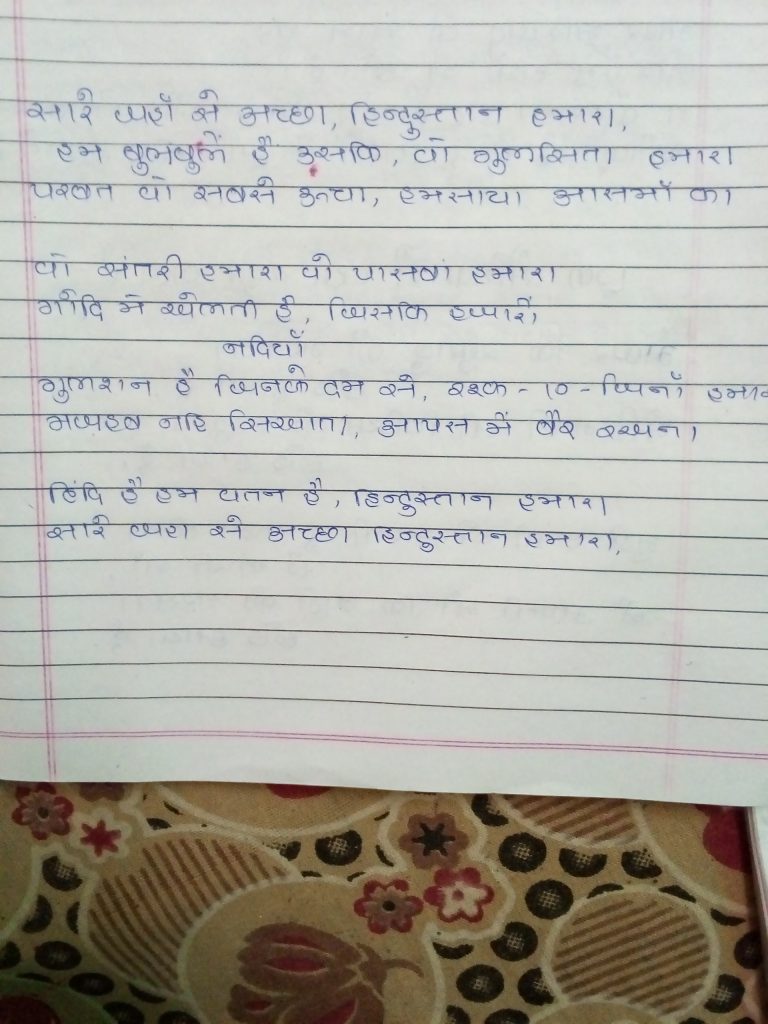 सारे जहाँ से अच्छा, हिन्दुस्तान हमारा,
हम बुलबुलें है उसकि, वो गुलसिता हमारा
परबत वो सबसे ऊचा, हमसाया आसमाँ का
वो संतरी हमारा वो पासबां हमारा
गोदि में खेलती है, जिसकि हजारों
नदियाँ
गुलशन है जिनके दम से, रश्क-ए-जिनाँ हमारा
मजहब नहि सिखाता, आपस में बैर रखना
हिंदि है हम वतन है, हिन्दुस्तान हमारा
सारे जहा से अच्छा हिन्दुस्तान हमारा,